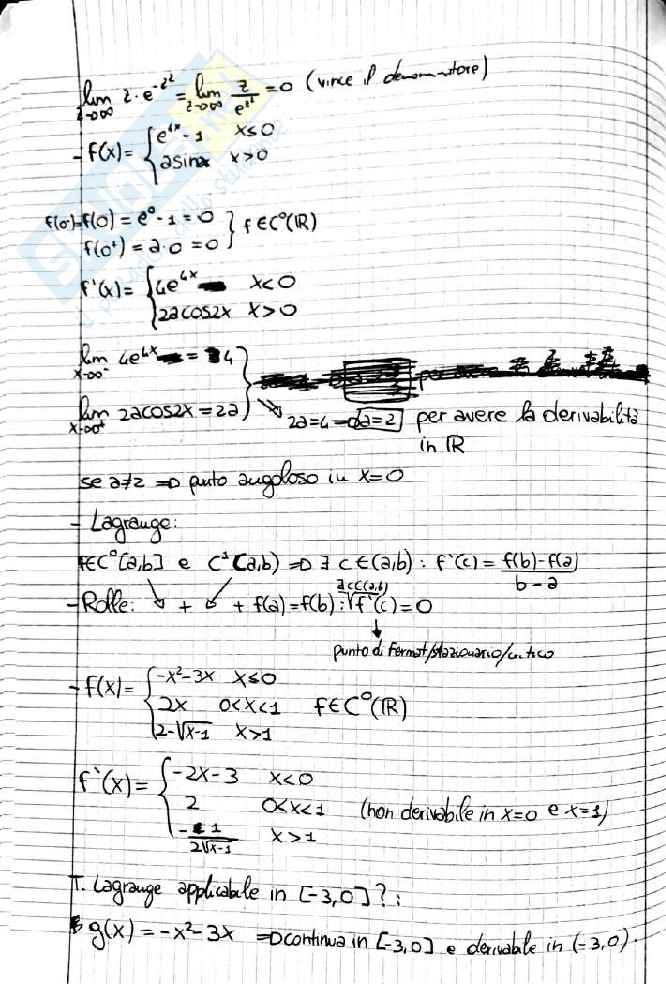 lim z·e^-z² = lim z/e^z² = 0 (vince il denominatore)
z→∞ z→∞
- f(x) = { e^4x - 1 x≤0
a sin2x x>0
f(0⁻)=f(0) = e⁰-1 = 0 } f∈C⁰(ℝ)
f(0⁺) = a·0 = 0
f'(x) = { 4e^4x x<0
2a cos2x x>0
lim 4e^4x = 4
x→0⁻
lim 2a cos2x = 2a } ⇒ 2a=4 → a=2 per avere la derivabilità
x→0⁺ in ℝ
se a≠2 ⇒ punto angoloso in x=0
- Lagrange:
f∈C⁰[a,b] e C¹(a,b) ⇒ ∃ c∈(a,b) : f'(c) = f(b)-f(a) / b-a
- Rolle: ↘ + ↙ + f(a)=f(b) : ∃c∈(a,b) f'(c)=0
↓
punto di Fermat/stazionario/critico
- f(x) = { -x²-3x x≤0
2x 0<x<1 f∈C⁰(ℝ)
2-√x-1 x>1
f'(x) = { -2x-3 x<0
2 0<x<1 (non derivabile in x=0 e x=1)
-1/2√x-1 x>1
T. Lagrange applicabile in [-3,0]?:
g(x) = -x²-3x ⇒ continua in [-3,0] e derivabile in (-3,0).